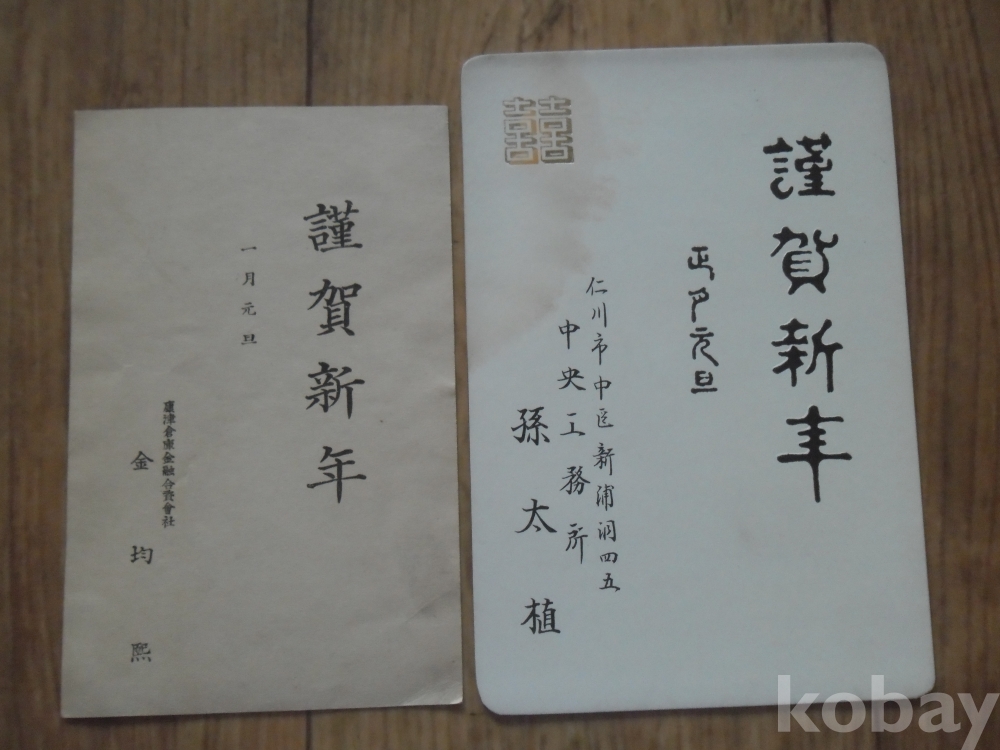 謹賀新年
一月元旦
津倉庫金融合資會社
金均熙
謹賀新年
正月元旦
仁川市中区新浦洞四五
中央工務所
孫太植
囍
kobay